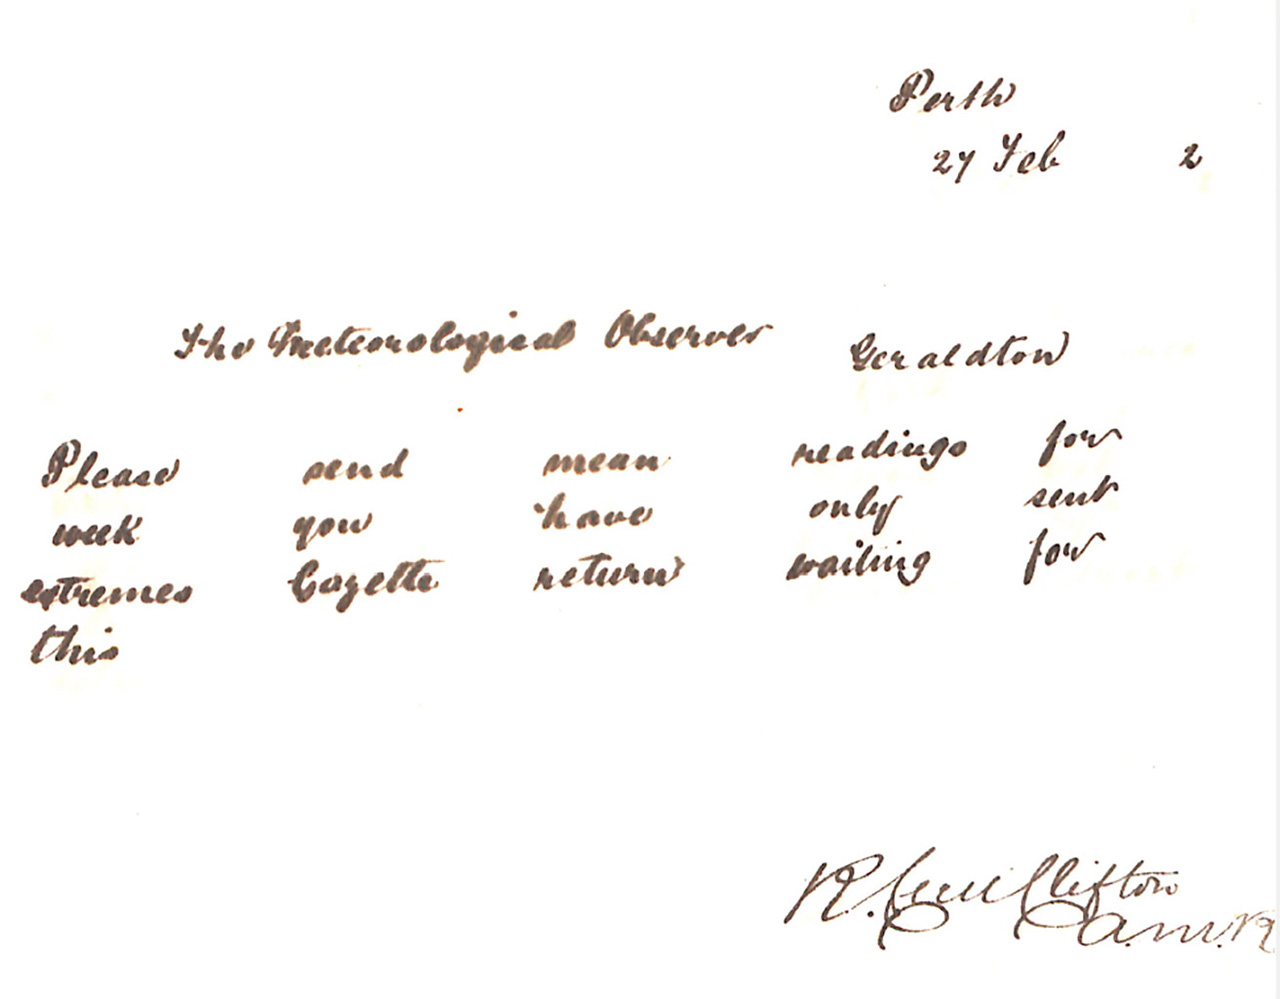 Perth
27 Feb 2
The Meteorological Observer Geraldton
Please send mean readings for
week you have only sent
extremes Gazette return waiting for
this
R. Cecil Clifton